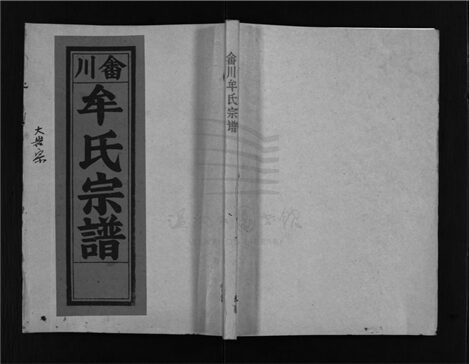 畬川
牟氏宗譜
大岩宗
畬川牟氏宗譜